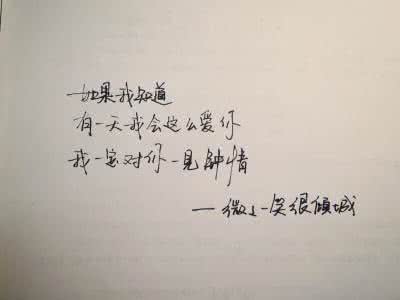 如果我知道
有一天我会这么爱你
我一定对你一见钟情
——微微一笑很倾城